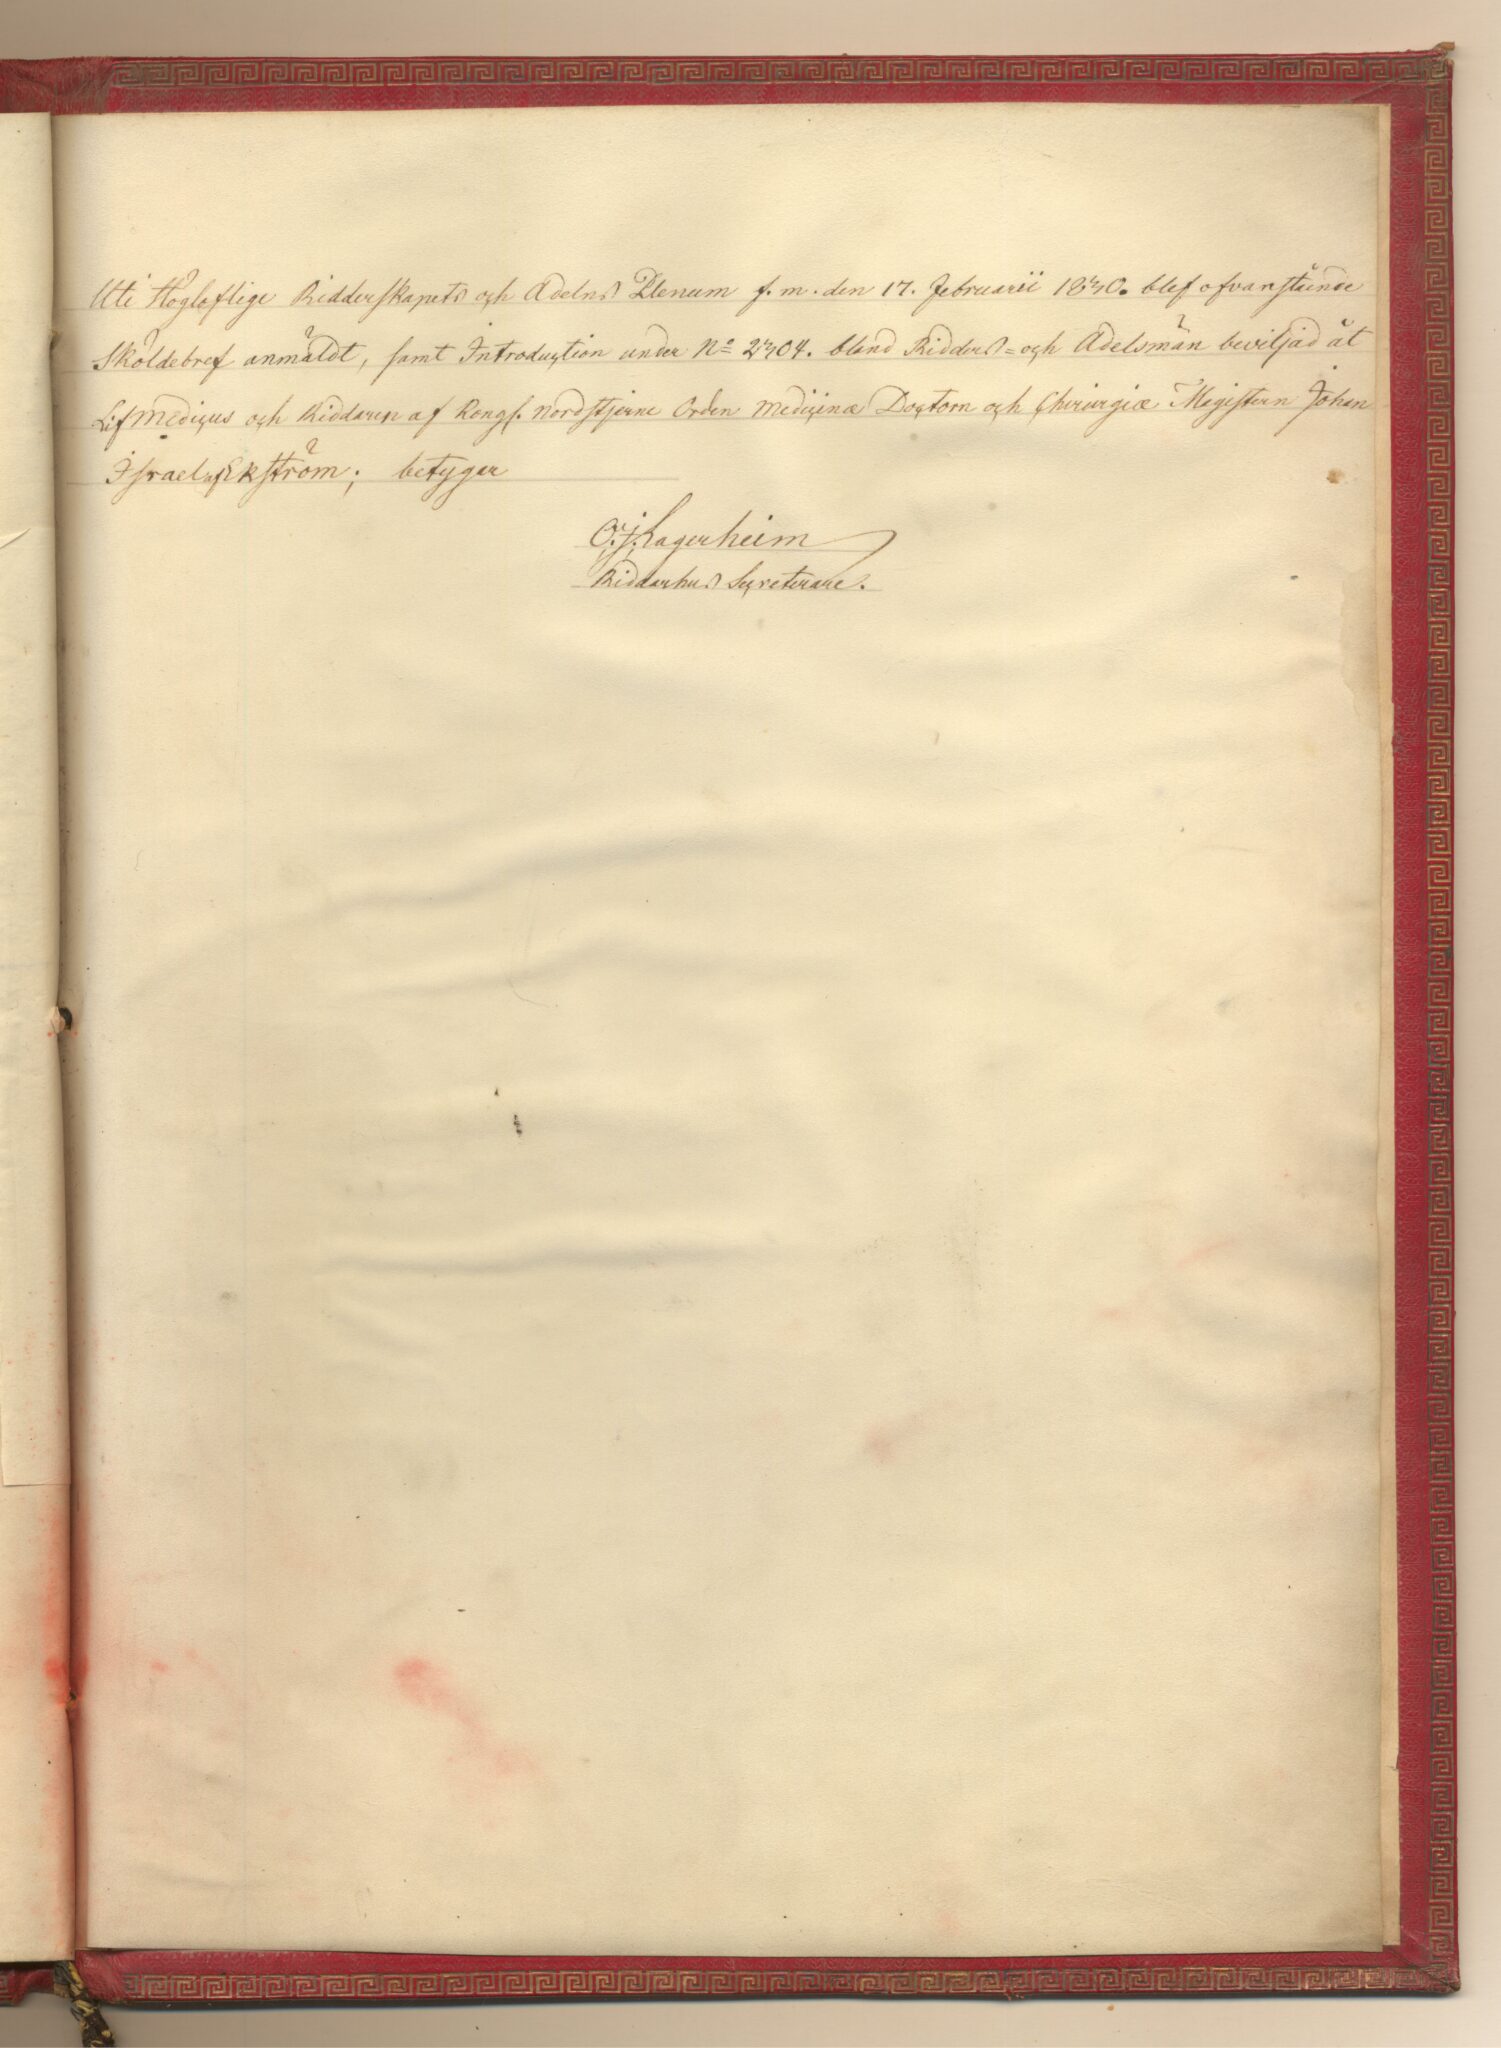 Uti Högloflige Ridderskapets och Adelns Plenum f. m. den 17. Februarii 1830. blef ofvanstående
Sköldebref anmäldt, samt Introduction under No 2304. bland Ridders- och Adelsmän beviljad åt
Lifmedicus och Riddaren af Kongl. Nordstjerne Orden Medicinæ Doctorn och Chirurgiæ Magistern Johan
Israel af Ekström; betygar
C. J. Lagerheim
Riddarhus Secreterare.